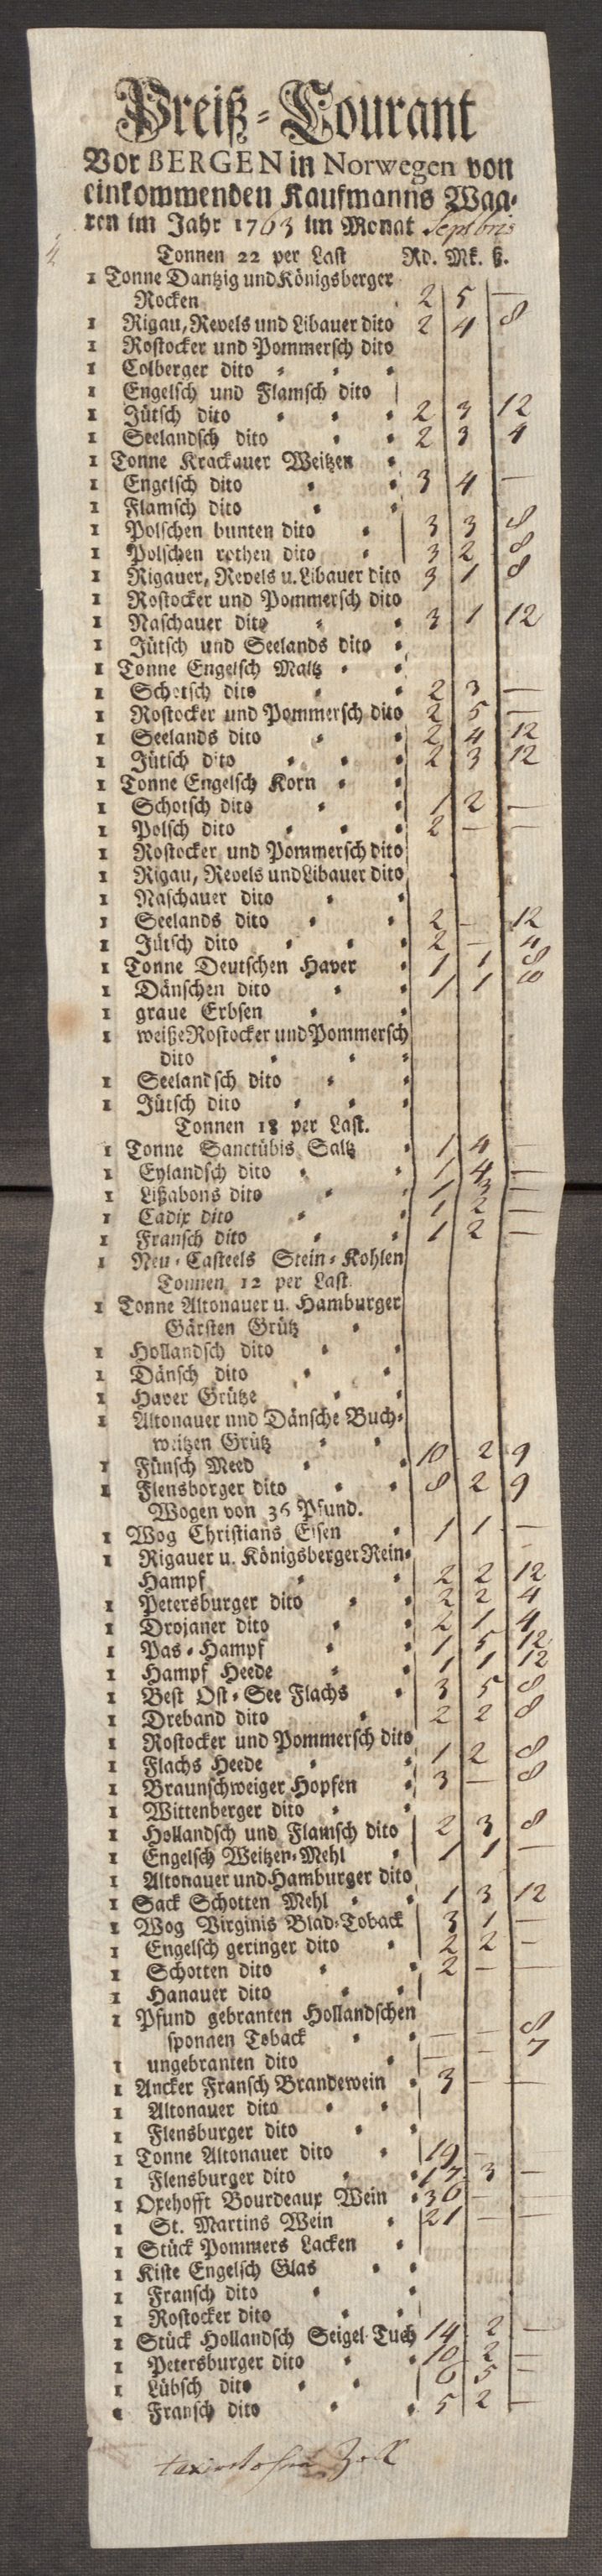 Preiß-Courant
Vor BERGEN in Norwegen von
einkommenden Kaufmanns Waa-
ren im Jahr 1763 im Monat Septbris
Tonnen 22 per Last Rd. Mk. ß.
1 Tonne Dantzig und Königsberger
Rocken 2 5 —
1 Rigau, Revels und Libauer dito 2 4 8
1 Rostocker und Pommersch dito
1 Colberger dito
1 Engelsch und Flamsch dito
1 Jütsch dito 2 3 12
1 Seelandsch dito 2 3 4
1 Tonne Krackauer Weitzen
1 Engelsch dito 3 4 —
1 Flamsch dito
1 Polschen bunten dito 3 3 8
1 Polschen rothen dito 3 2 8
1 Rigauer, Revels u. Libauer dito 3 1 8
1 Rostocker und Pommersch dito
1 Naschauer dito 3 1 12
1 Jütsch und Seelands dito
1 Tonne Engelsch Maltz
1 Schotsch dito 2 3 —
1 Rostocker und Pommersch dito 2 5 —
1 Seelands dito 2 4 12
1 Jütsch dito 2 3 12
1 Tonne Engelsch Korn
1 Schotsch dito 1 2 —
1 Polsch dito 2 — —
1 Rostocker und Pommersch dito
1 Rigau, Revels und Libauer dito
1 Naschauer dito
1 Seelands dito 2 — 12
1 Jütsch dito 2 — 4
1 Tonne Deutschen Haver 1 1 8
1 Dänschen dito 1 1 8
1 graue Erbsen
1 weiße Rostocker und Pommersch
dito
1 Seelandsch dito
1 Jütsch dito
Tonnen 18 per Last.
1 Tonne Sanctübis Saltz 1 4 —
1 Eylandsch dito 1 4 —
1 Lißabons dito 1 3 —
1 Cadix dito 1 2 —
1 Fransch dito 1 2 —
1 Neu-Casteels Stein-Kohlen
Tonnen 12 per Last
1 Tonne Altonauer u. Hamburger
Gärsten Grütz
1 Hollandsch dito
1 Dänsch dito
1 Haver Grütze
1 Altonauer und Dänsche Buch-
weitzen Grütz
1 Fünsch Meed 10 2 9
1 Flensborger dito 8 2 9
Wogen von 36 Pfund.
1 Wog Christians Eisen 1 1 —
1 Rigauer u. Königsberger Rein-
Hampf 2 2 12
1 Petersburger dito 2 2 4
1 Drojaner dito 2 1 4
1 Pas-Hampf 1 5 12
1 Hampf Heede 1 1 12
1 Best Ost-See Flachs 3 5 8
1 Dreband dito 2 2 8
1 Rostocker und Pommersch dito
1 Flachs Heede 1 2 8
1 Braunschweiger Hopfen 3 — 8
1 Wittenberger dito
1 Hollandsch und Flamsch dito 2 3 8
1 Engelsch Weitzen-Mehl 1 1 —
1 Altonauer und Hamburger dito
1 Sack Schotten Mehl 1 3 12
1 Wog Virginis Blad-Toback 3 1 —
1 Engelsch geringer dito 2 2 —
1 Schotten dito 2 — —
1 Hanauer dito
1 Pfund gebranten Hollandschen
sponnen Toback — — 8
1 ungebranten dito — — 7
1 Ancker Fransch Brandewein 3 — —
1 Altonauer dito
1 Flensburger dito
1 Tonne Altonauer dito 19 —
1 Flensburger dito 17 3 —
1 Oxehofft Bourdeaux Wein 36 —
1 St. Martins Wein 21 — —
1 Stück Pommers Lacken
1 Kiste Engelsch Glas
1 Fransch dito
1 Rostocker dito
1 Stück Hollandsch Seigel-Tuch 14 2 —
1 Petersburger dito 10 2 —
1 Lübsch dito 6 5 —
1 Fransch dito 5 2 —
Zoll